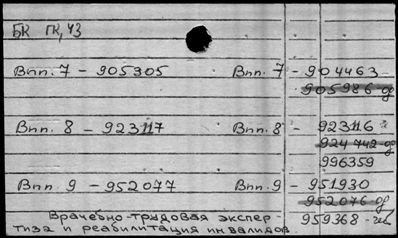 БК ГК, ЧЗ
Впп. 7 - 905305 Впп. 7 - 904463
905986-др
Впп. 8 - 923117 Впп. 8 - 923116
924742-др
996359
Впп. 9 - 952077 Впп. 9 - 951930
952076-др
Врачебно-трудовая экспер- 959368-
тиза и реабилитация инвалидов